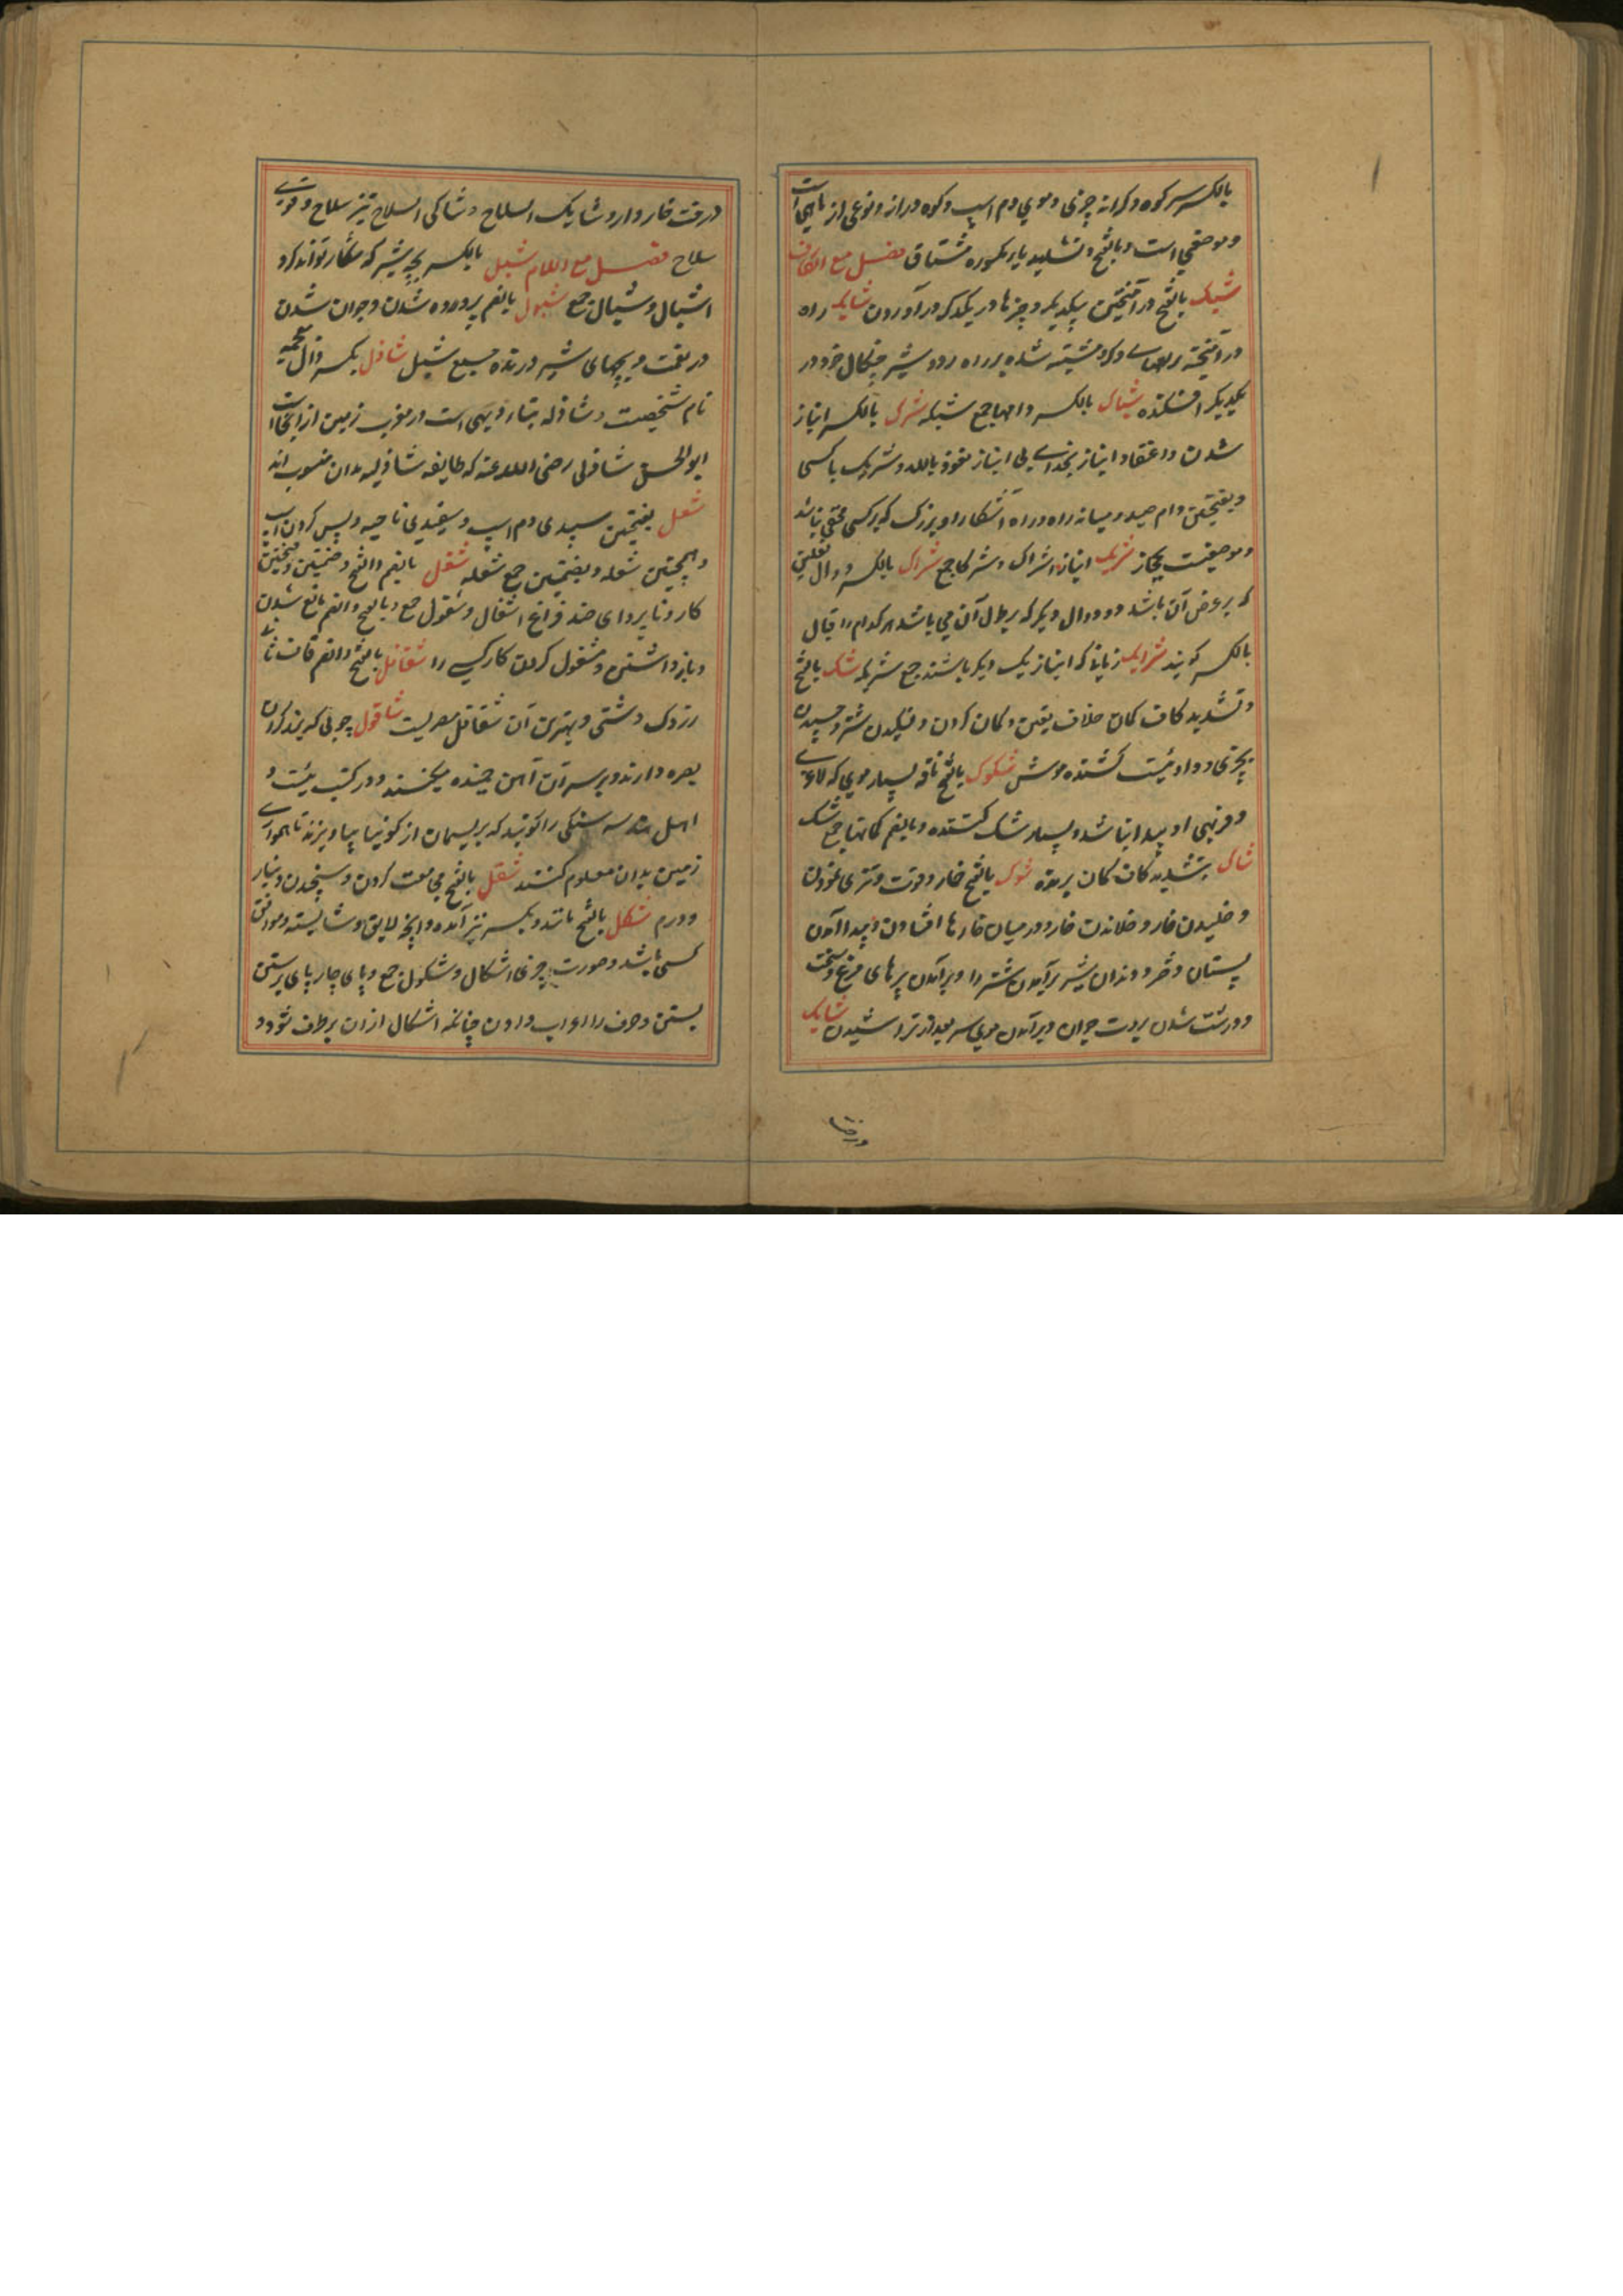 بالکسر سر کوه و کرانه چیزی و موی دم اسپ و کوه دراز و نوعی از ماهی است
و موضعی است و بالفتح و تشدید یاء مکسوره مشتاق فصل مع الکاف
شبک بالفتح در آمیختن بیکدیگر و چیزها در یکدیگر در آوردن شابک راه
در آمیخته و شیر چنکال خود در
یکدیگر افکننده شباک بالکسر دامها جمع شبکه شرک بالکسر انباز
شدن و اعتقاد انباز بخدای بی انباز نعوذ بالله و شریک با کسی
و بفتحتین دام صید و میانه راه و راه آشکارا و بزرک که بر کسی مخفی نباشد
و موضعیست بحجاز شریک انباز اشراک و شرکا جمع شراک بالکسر دوال نعلین
که بر عرض آن باشد و دو دوال دیکر که بر طول آن می باشد هر کدام را قبال
بالکسر کویند شرایک زنان که انباز یک دیکر باشند جمع شریکه شک بالفتح
و تشدید کاف کمان خلاف یقین و کمان کردن و لنکیدن شتر و چسپیدن
بچیزی و دوائیست کشنده موش شکوک بالفتح ناقه بسیار موی که لاغری
و فربهی او پیدا نباشد و بسیار شک کننده و بالضم کمانها جمع شک
شاک بتشدید کاف کمان برنده شوک بالفتح خار و قوت و تیزی نمودن
و خلیدن خار و خلاندن خار و در میان خارها افتادن و پیدا آمدن
پستان دختر و دندان نیش برآمدن شتر را و برآمدن پرهای مرغ و سخت
و درشت شدن بروت جوان و برآمدن موی سر بعد از تراشیدن شایک
درخت
درخت خاردار و شایک السلاح و شاکی السلاح تیز سلاح و قوی
سلاح فصل مع اللام شبل بالکسر بچه شیر که شکار تواند کرد
اشبال و شبال جمع شبول بالضم پرورده شدن و جوان شدن
در نعمت و بچهای شیر درنده جمع شبل شاذل بکسر ذال معجمه
نام شخصیست و شاذله بتاء دیهی است در مغرب زمین از آنجا است
ابو الحسن شاذلی رضی الله عنه که طایفه شاذلیه بدان منسوب اند
شعل بفتحتین سپیدی دم اسپ و سفیدی ناصیه و پس کردن اسپ
و همچنین شعله و بضمتین جمع شعله شغل بالضم و الفتح و ضمتین و فتحتین
کار و ناپروای ضد فراغ اشغال و شغول جمع و بالفتح و الضم مانع شدن
و بازداشتن و مشغول کردن کار کسی را شقاقل بالفتح و الضم قاف ثانی
زردک دشتی و بهترین آن شقاقل مصریست شاقول چوبی که برزکران
بصره دارند و بر سر آن آهن چسپیده میکنند و در کتب هیئت و
اهل هندسه سنکی را کویند که بریسمان از کونیا بیاویزند تا همواری
زمین بدان معلوم کنند شقل بالفتح مجامعت کردن و سنجیدن دینار
و درم شکل بالفتح مانند و بکسر نیز آمده و آنچه لایق و شایسته و موافق
کسی باشد و صورت چیزی اشکال و شکول جمع و پای چارپای برستن
بستن و حرف را اعراب دادن چنانکه اشکال از آن برطرف شود و